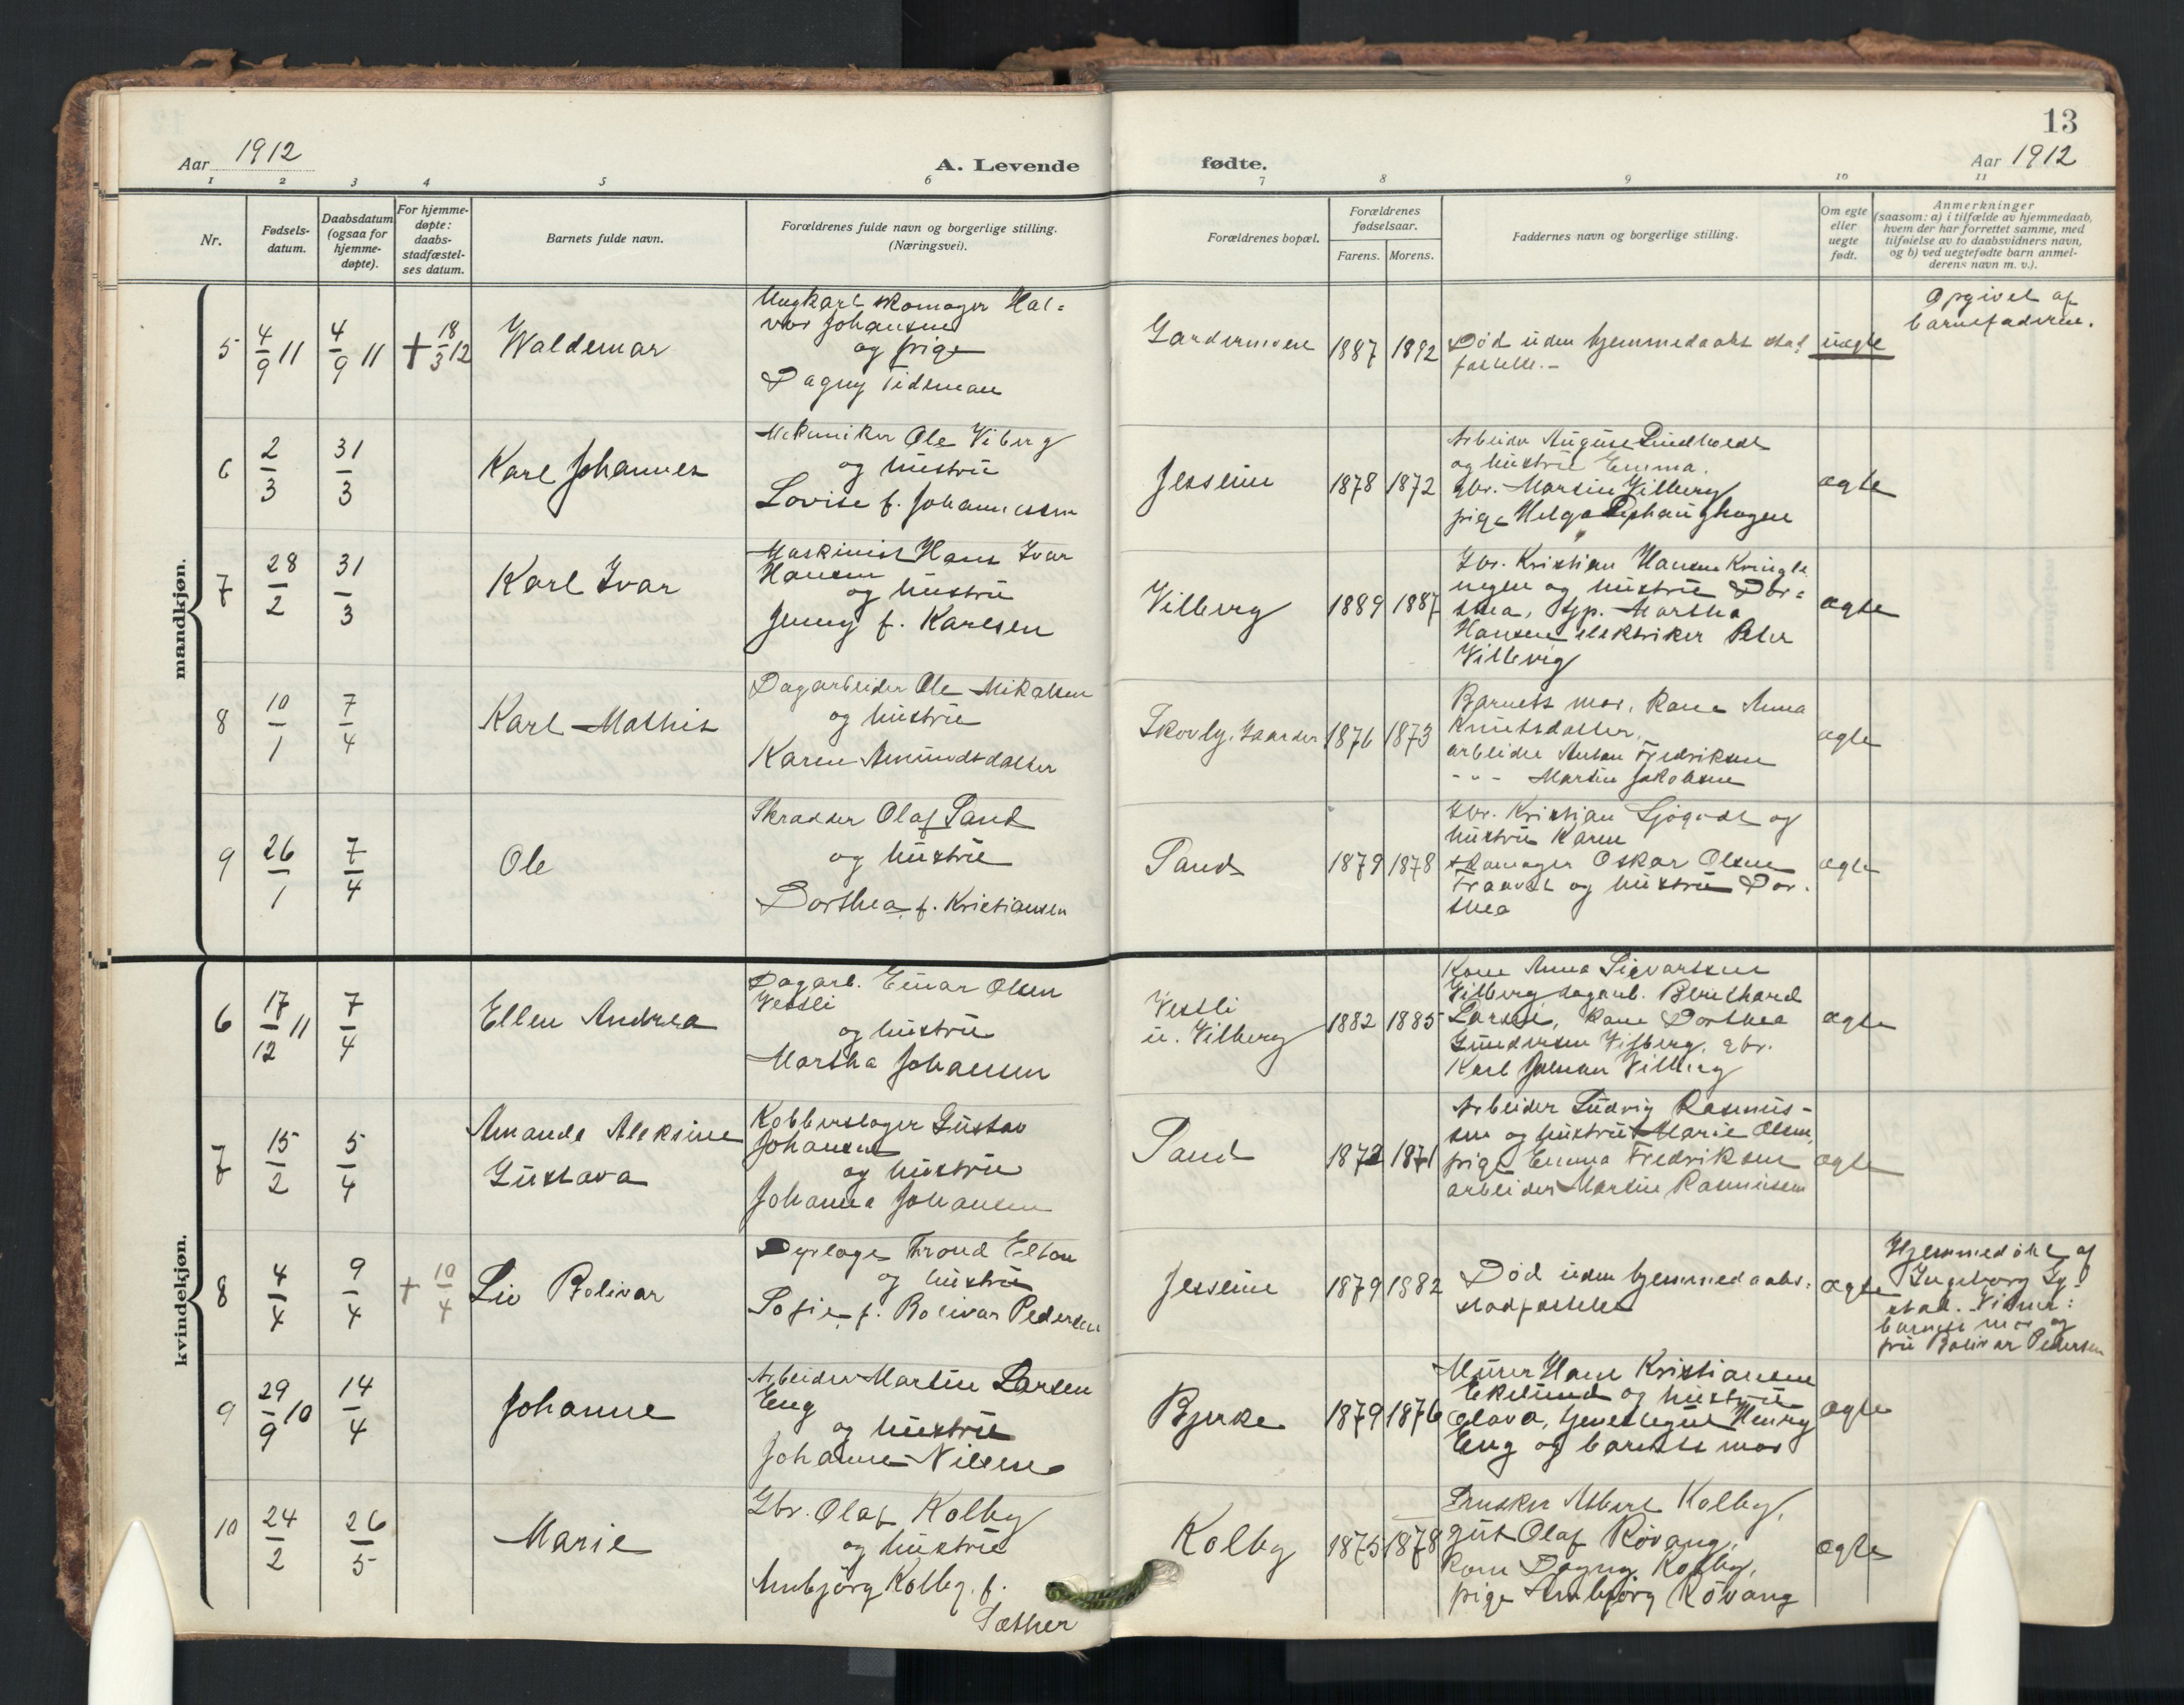 13
Aar 1912
A. Levende
fødte.
Aar 1912
1 2 3 4 5 6 7 8 9 10 11
Nr.
Fødsels-
datum.
Daabsdatum
(ogsaa for
hjemme-
døpte).
For hjemme-
døpte:
daabs-
stadfæstel-
ses datum.
Barnets fulde navn.
Forældrenes fulde navn og borgerlige stilling.
(Næringsvei).
Forældrenes bopæl.
Forældrenes
fødselsaar.
Farens. Morens.
Faddernes navn og borgerlige stilling.
Om egte
eller
uegte
født.
Anmerkninger
(saasom: a) i tilfælde av hjemmedaab,
hvem der har forrettet samme, med
tilføielse av to daabsvidners navn,
og b) ved uegtefødte barn anmel-
derens navn m. v.).
mandkjøn.
5
4/9 11
4/9 11
+ 18/3 12
Waldemar
Ungkarl skomager Hal=
vor Johansen
og pige
Dagny Tideman
Gardermoen
1887 1892
Død uden hjemmedaabs stad
fæstelse.-
uegte
Opgivet af
barnefaderen.
6
2/3
31/3
Karl Johannes
Mekaniker Ole Viberg
og hustru
Lovise f. Johannessen
Jesseim
1878 1872
Arbeider August Lindholdt
og hustru Emma.
gbr. Martin Vilberg
pige Helga
ægte
7
28/2
31/3
Karl Ivar
Maskinist Hans Ivar
Hansen
og hustru
Jenny f. Karlsen
Vilberg
1889 1887
Gbr. Kristian Hansen Kringle
neglen og hustru Dor=
thea, Martha
Hansen elektriker Peter
Vilberg
ægte
8
10/1
7/4
Karl Mathis
Dagarbeider Ole Mikalsen
og hustru
Karen Amundsdatter
Skovly, Gaarder
1876 1873
Barnets mor, kone Anna
Knutsdatter,
arbeider Anton Fredriksen
- " - Martin Jakobsen
ægte
9
26/1
7/4
Ole
Skrædder Olaf Sand
og hustru
Dorthea f. Kristiansen
Sand
1879 1878
Gbr. Kristian Sjøgodt og
hustru Karen
skomager Oskar Olsen
og hustru Dor-
thea
ægte
kvindekjøn.
6
17/12 11
7/4
Ellen Andrea
Dagarb. Einar Olsen
Vestli
og hustru
Martha Johansen
Vestli
u. Vilberg
1882 1885
Kone Anna Sigvartsen
Vilberg dagarb. Bernthard
Larsen, kone Dorthea
Gundersen Vilberg, gbr.
Karl Vilberg
ægte
7
15/2
5/4
Amanda Aleksine
Gustava
Kobberslager Gustav
Johansen
og hustru
Johanna Johansen
Sand
1872 1871
Arbeider Ludvig Rasmus-
sen og hustru Marie Olsen,
pige Emma Fredriksen
arbeider Martin Rasmussen
ægte
8
4/4
9/4
+ 10/4
Liv Bolivar
Dyrlæge Trond Elton
og hustru
Sofie f. Bolivar Pedersen
Jesseim
1879 1882
Død uden hjemmedaabs-
stadfæstelse
ægte
Hjemmedøbt af
Ingeborg Gy-
stad. Vidner:
barnets mor og
fru Bolivar Pedersen
9
29/9 10
14/4
Johanne
Arbeider Martin Larsen
Eng
og hustru
Johanne Nilsen
Bjerke
1879 1876
Murer Hans Kristiansen
Ekelund og hustru
Olava, Henry
Eng og barnets mor
ægte
10
24/2
26/5
Marie
Gbr. Olaf Kolby
og hustru
Anbjørg Kolby, f.
Sæther
Kolby
1875 1878
Albert Kolby,
gut Olaf Røvang,
kone Dagny Kolby,
pige Anbjørg Røvang
ægte